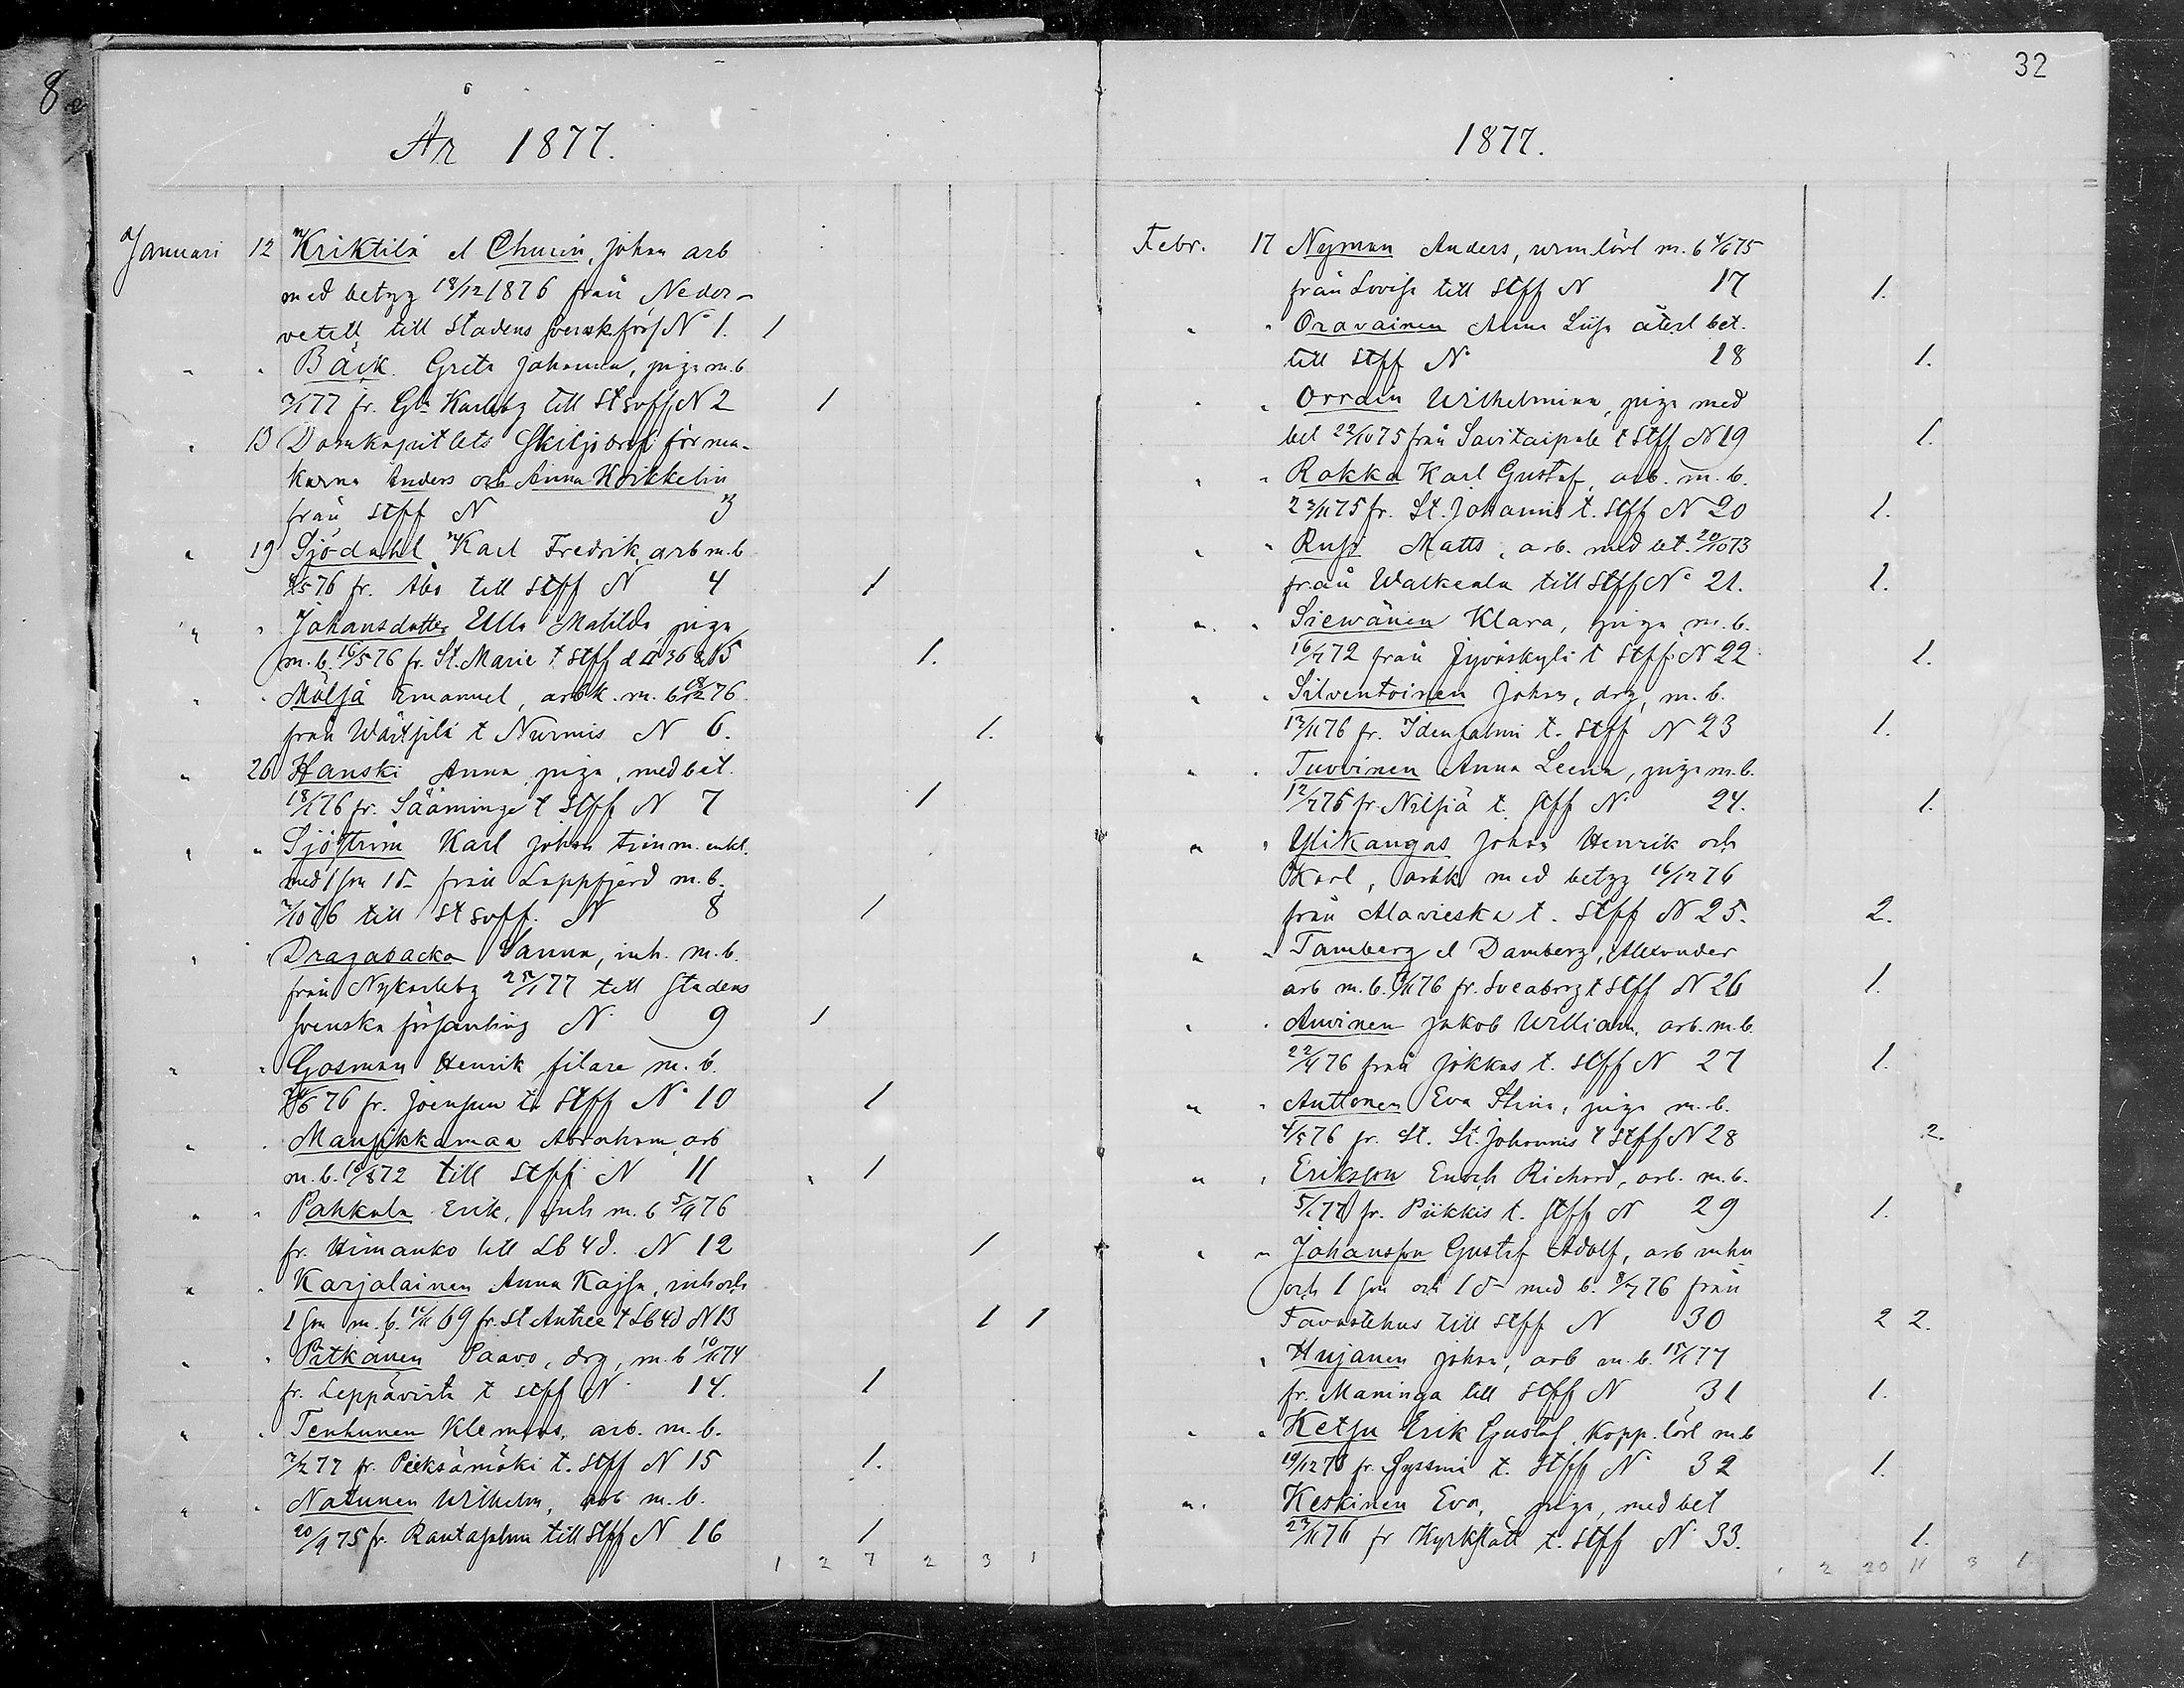 8
År 1877.
Januari 12 Kriktilä el Churin, Johan arb
med betyg 18/12 1876 från Neder-
vetill till Stadens svensk förs N° 1. 1
" " Bäck Greta Johanna, piga m.b
77 fr. Gla Karleby till St svff N 2 1
" 13 Domkapitlets Skiljobref för ma-
karna Anders och Anna Koikkelin
från Stff N 3
" 19 Sjödahl Karl Fredrik, arb m.b
76 fr. Åbo till Stff N 4 1
" " Johansdotter Ulla Matilda piga
m.b. 16/5 76 fr. St. Marie t Stff d. 15 1.
" " Möljä Emanuel, arbk. m.b 76
från Wärtsilä t Nurmis N 6. 1.
" 26 Hanski Anna piga, med bet.
18/1 76 fr. Sääminge t Stff N 7 1
" " Sjöström Karl Johan timm. enkl.
med 1 son 1 d- från Lappfjerd m.b.
76 till St svff. N 8 1
" " Dragabacka Sanna, inh. m.b.
från Nykarleby 25/1 77 till Stadens
svenska församling N 9 1
" " Gosman Henrik filare m.b.
76 fr. Joensuu t. Stff N° 10 1
" " Manjikkamaa Abraham, arb
m.b. 10/8 72 till Stff N 11 1
" " Pahkala Erik, inh m.b 5/9 76
fr. Himanko till Lb 4d. N 12 1
" " Karjalainen Anna Kajsa, inh och
1 son m.b. 69 fr. St Antrée t Lb 4d N 13 1 1
" " Pitkänen Paavo, drg, m.b 10/11 74
fr. Leppävirta t Stff N 14. 1
" " Tenhunen Klemens, arb. m.b.
77 fr. Pieksämäki t. Stff N 15 1.
" " Natunen Wilhelm, arb m.b.
20/9 75 fr. Rantasalmi till Stff N 16 1
1 2 7 2 3 1
32
1877.
Febr. 17 Nyman Anders, urm.lärl m.b 75
från Lovisa till Stff N 17 1.
" " Oravainen Anna Lisa återl bet.
till Stff N° 18 1.
" " Orrain Wilhelmina, piga med
bet 22/10 75 från Savitaipale t Stff N 19 1.
" " Rokka Karl Gustaf, arb. m.b.
75 fr. St. Johannis t. Stff N 20 1.
" " Russi Matts, arb. med bet. 20/10 73
från Walkeala till Stff N° 21. 1.
" " Siewänen Klara, piga m.b.
16/7 72 från Jyväskylä t Stff N 22 1.
" " Silventoinen Johan, drg, m.b.
13/11 76 fr. Idensalmi t. Stff N 23 1.
" " Tuovinen Anna Leena, piga m.b.
12/7 75 fr. Nilsiä t. Stff N° 24. 1.
" " Ylikangas Johan Henrik och
Karl, arbk med betyg 16/12 76
från Alavieska t. Stff N 25. 2.
" " Tamberg el Damberg, Alexander
arb m.b. 76 fr. Sveaborg t Stff N 26 1.
" " Auvinen Jakob William, arb. m.b.
22/9 76 från Jokkas t. Stff N 27 1.
" " Anttonen Eva Stina, piga m.b.
4/5 76 fr. St. St. Johannis t Stff N 28 2.
" " Eriksson Enoch Richard, arb. m.b.
5/1 77 fr. Piikkis t. Stff N 29 1.
" " Johansson Gustaf Adolf, arb m hu
och 1 son och 1 d- med b. 8/7 76 från
Tavastehus till Stff N 30 2 2.
" Hujanen Johan, arb m.b. 15/1 77
fr. Maninga till Stff N 31 1.
" " Ketsu Erik Gustaf, kopp.lärl m.b
19/12 76 fr. Sysmä t. Stff N° 32 1.
" Keskinen Eva, piga, med bet
23/11 76 fr Kyrkslätt t. Stff N 33. 1.
1 2 20 11 3 1